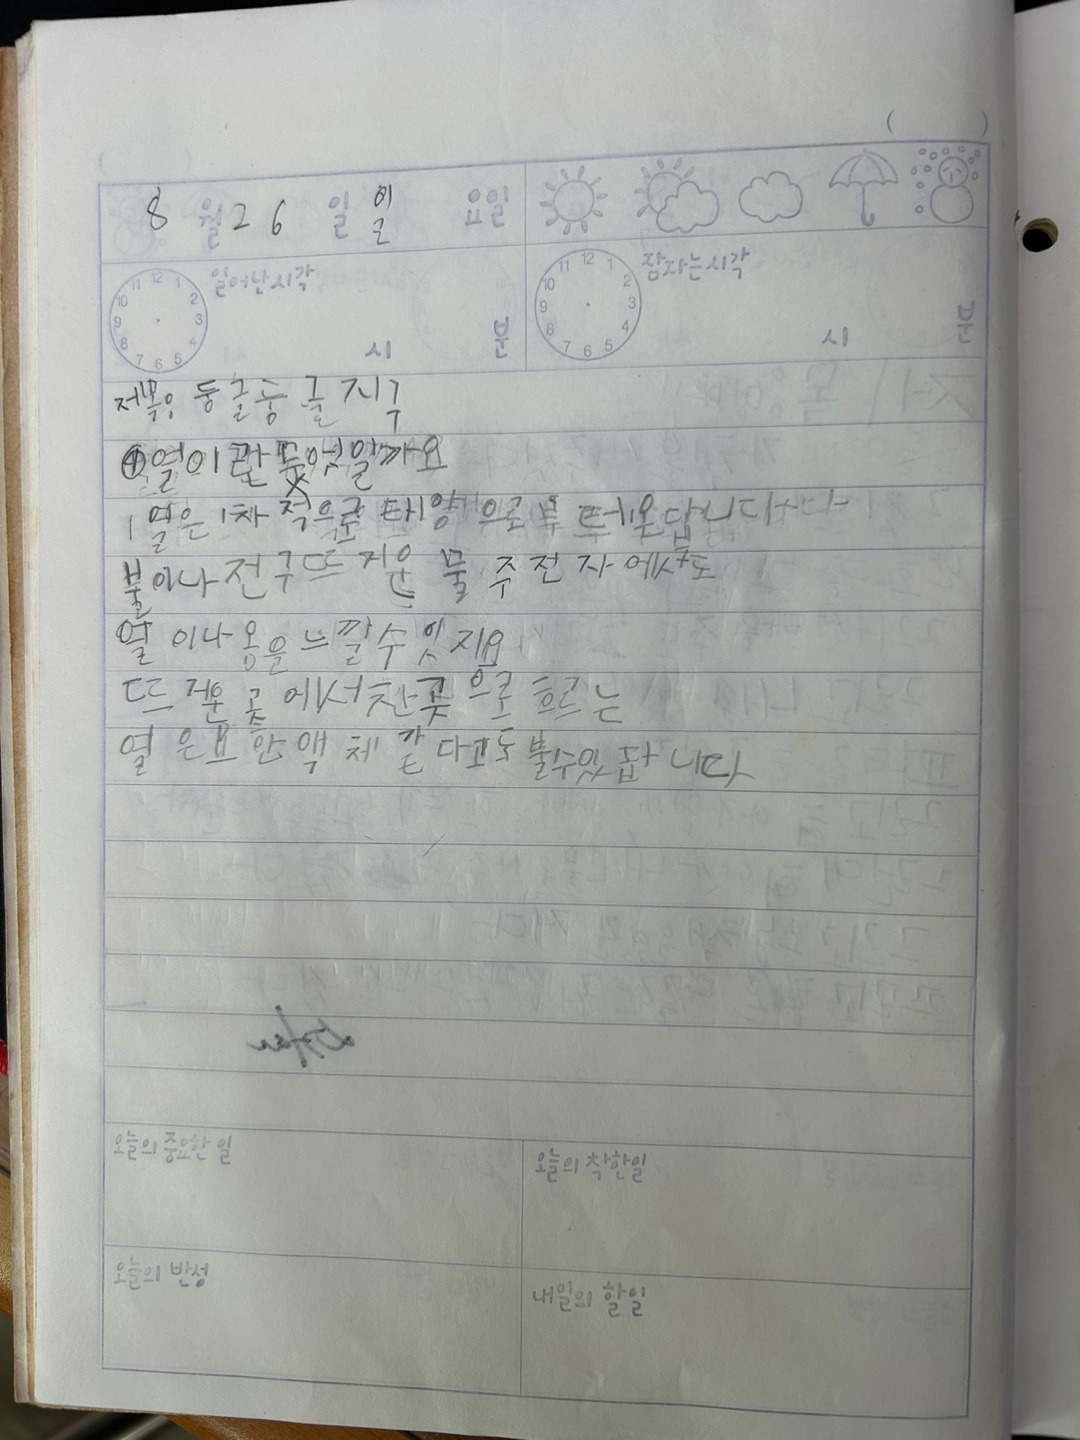 (          )
8 월 26 일 일 요일
일어난시각 잠자는시각
12 1 2 3 4 5 6 7 8 9 10 11
12 1 2 3 4 5 6 7 8 9 10 11
시 분 시 분
제목: 둥글둥글 지구
①열이란 무엇일까요
1 열은 1차적으로 태양으로부터 온답니다
불이나 전구뜨거운 물 주전자에서도
열 이나 옴을 느낄수 잇지요
뜨거운 곳에서찬곳으로 흐르는
열은요 한 액체 같다고도 볼수있답니다
오늘의 중요한 일 오늘의 착한일
오늘의 반성 내일의 할일